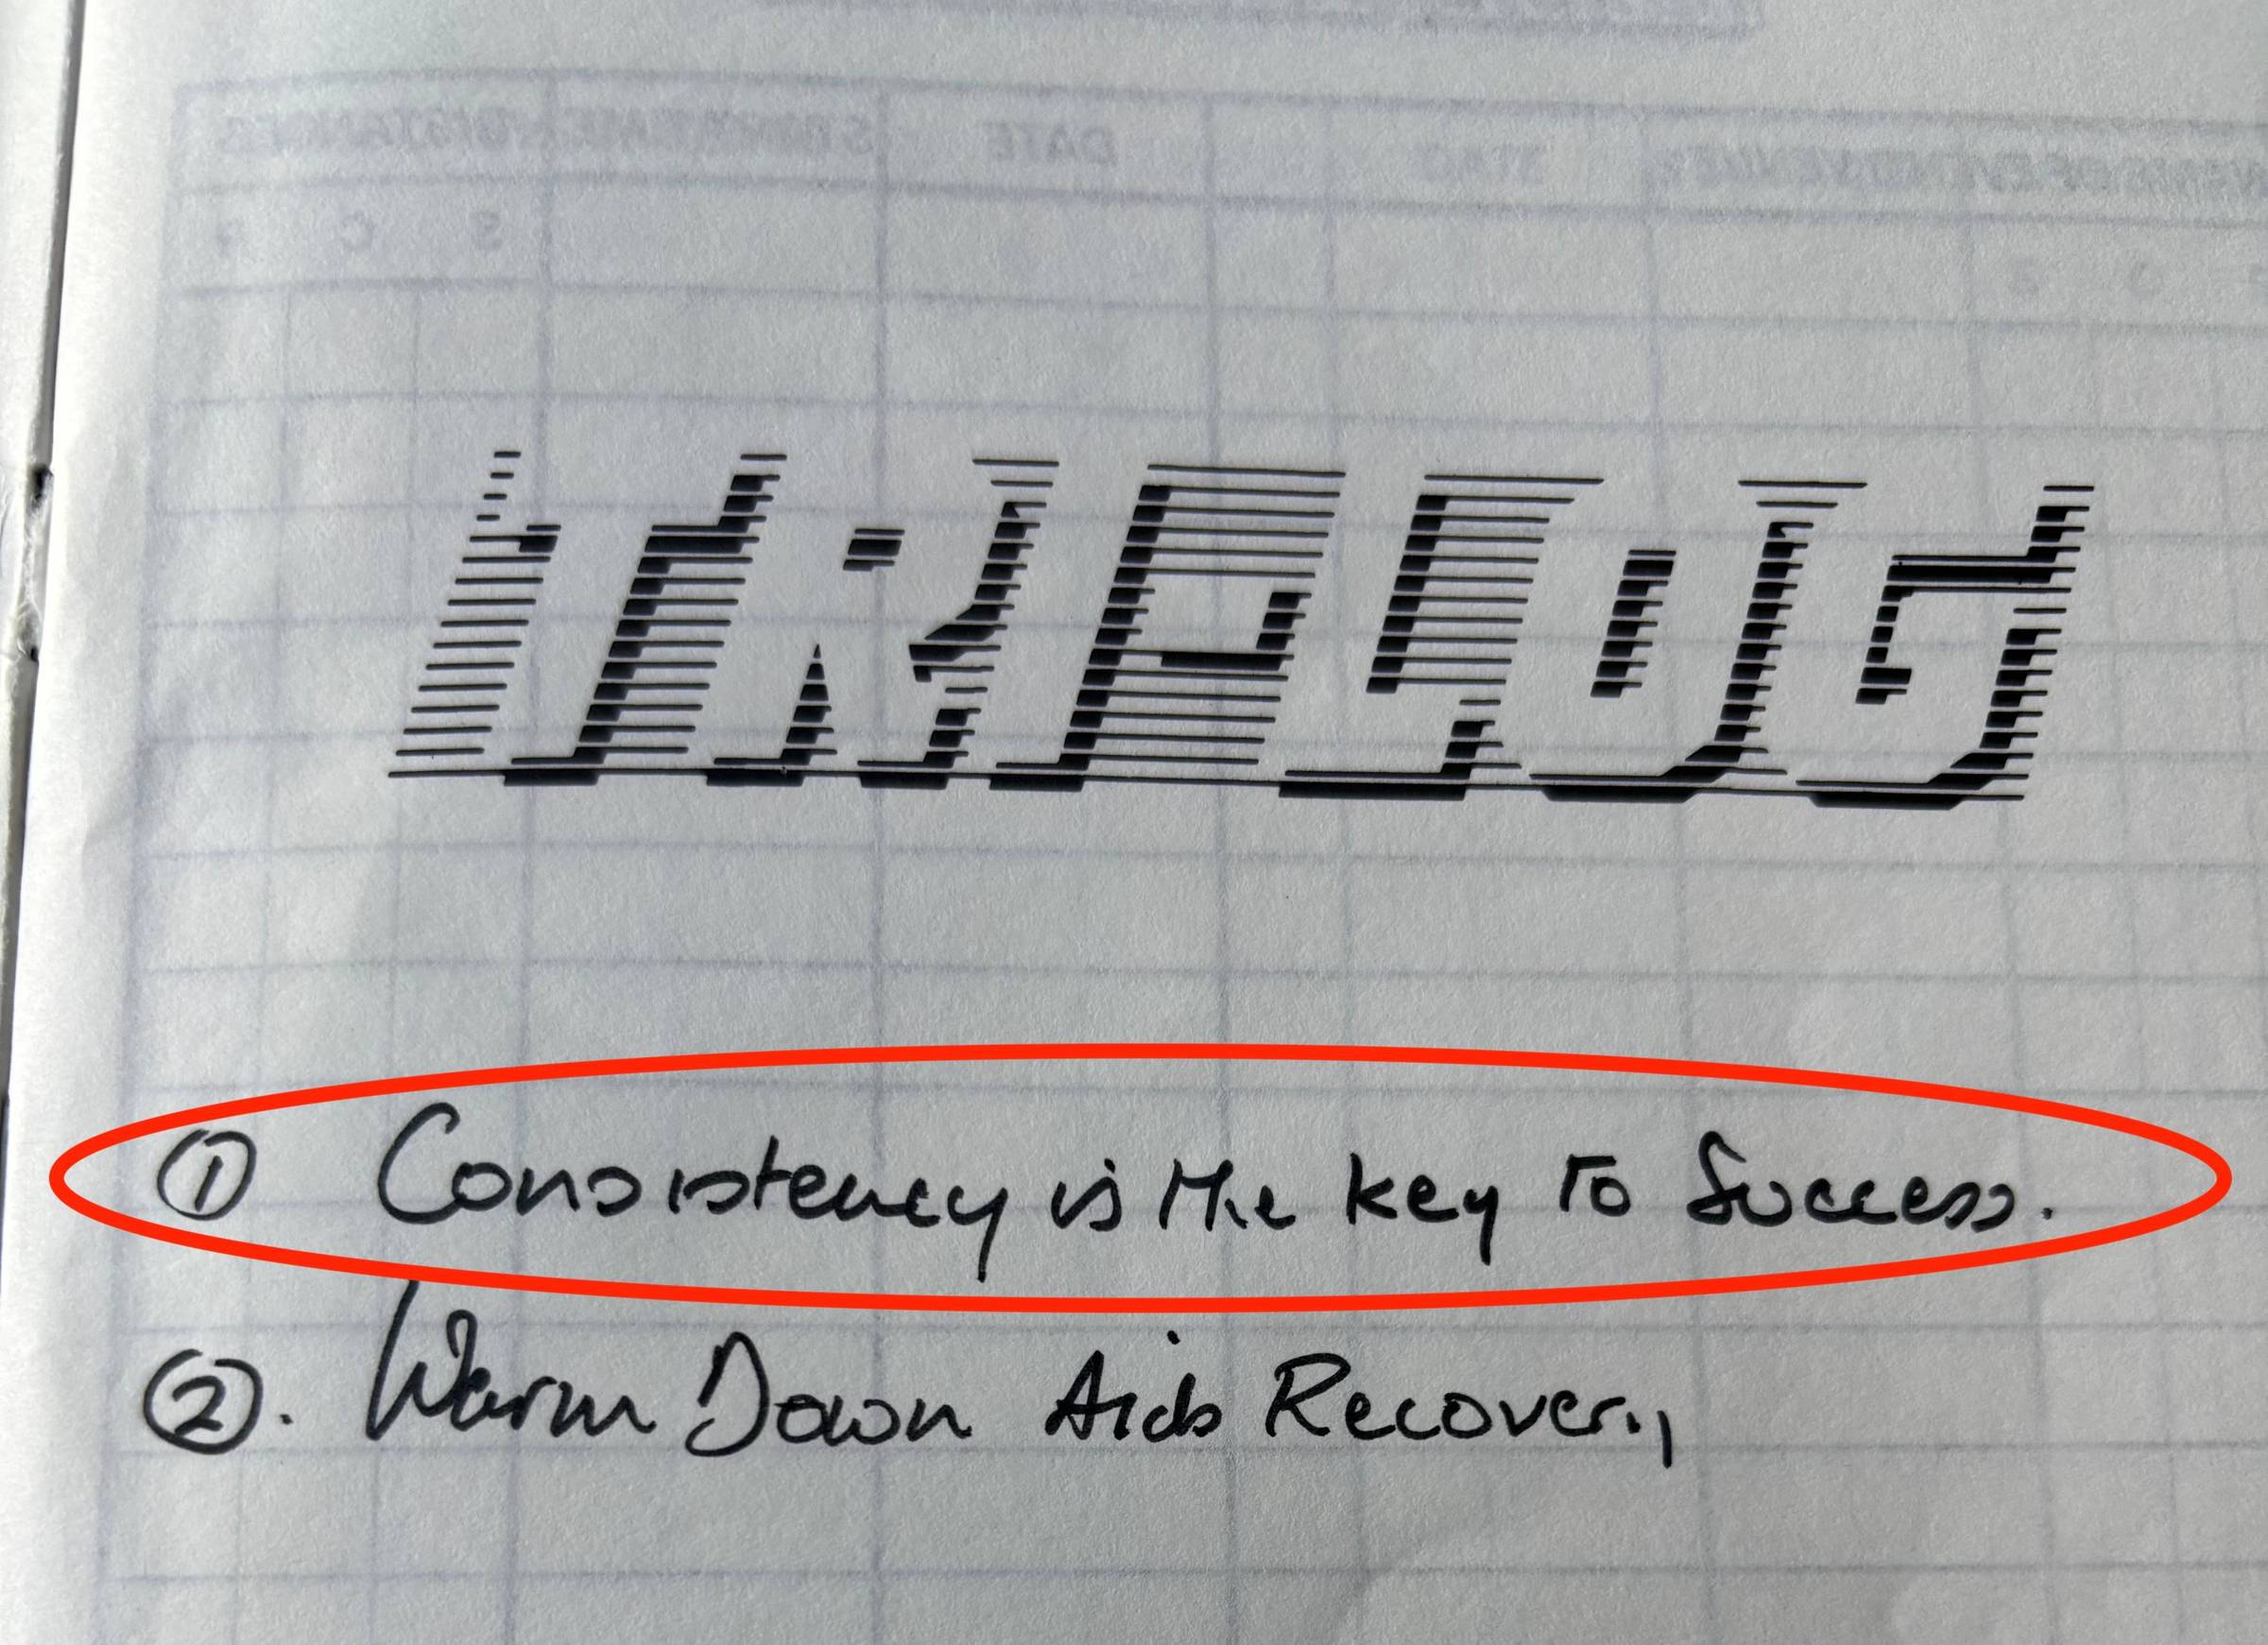 ① Consistency is the key to Success.
②. Warm Down Aids Recovery